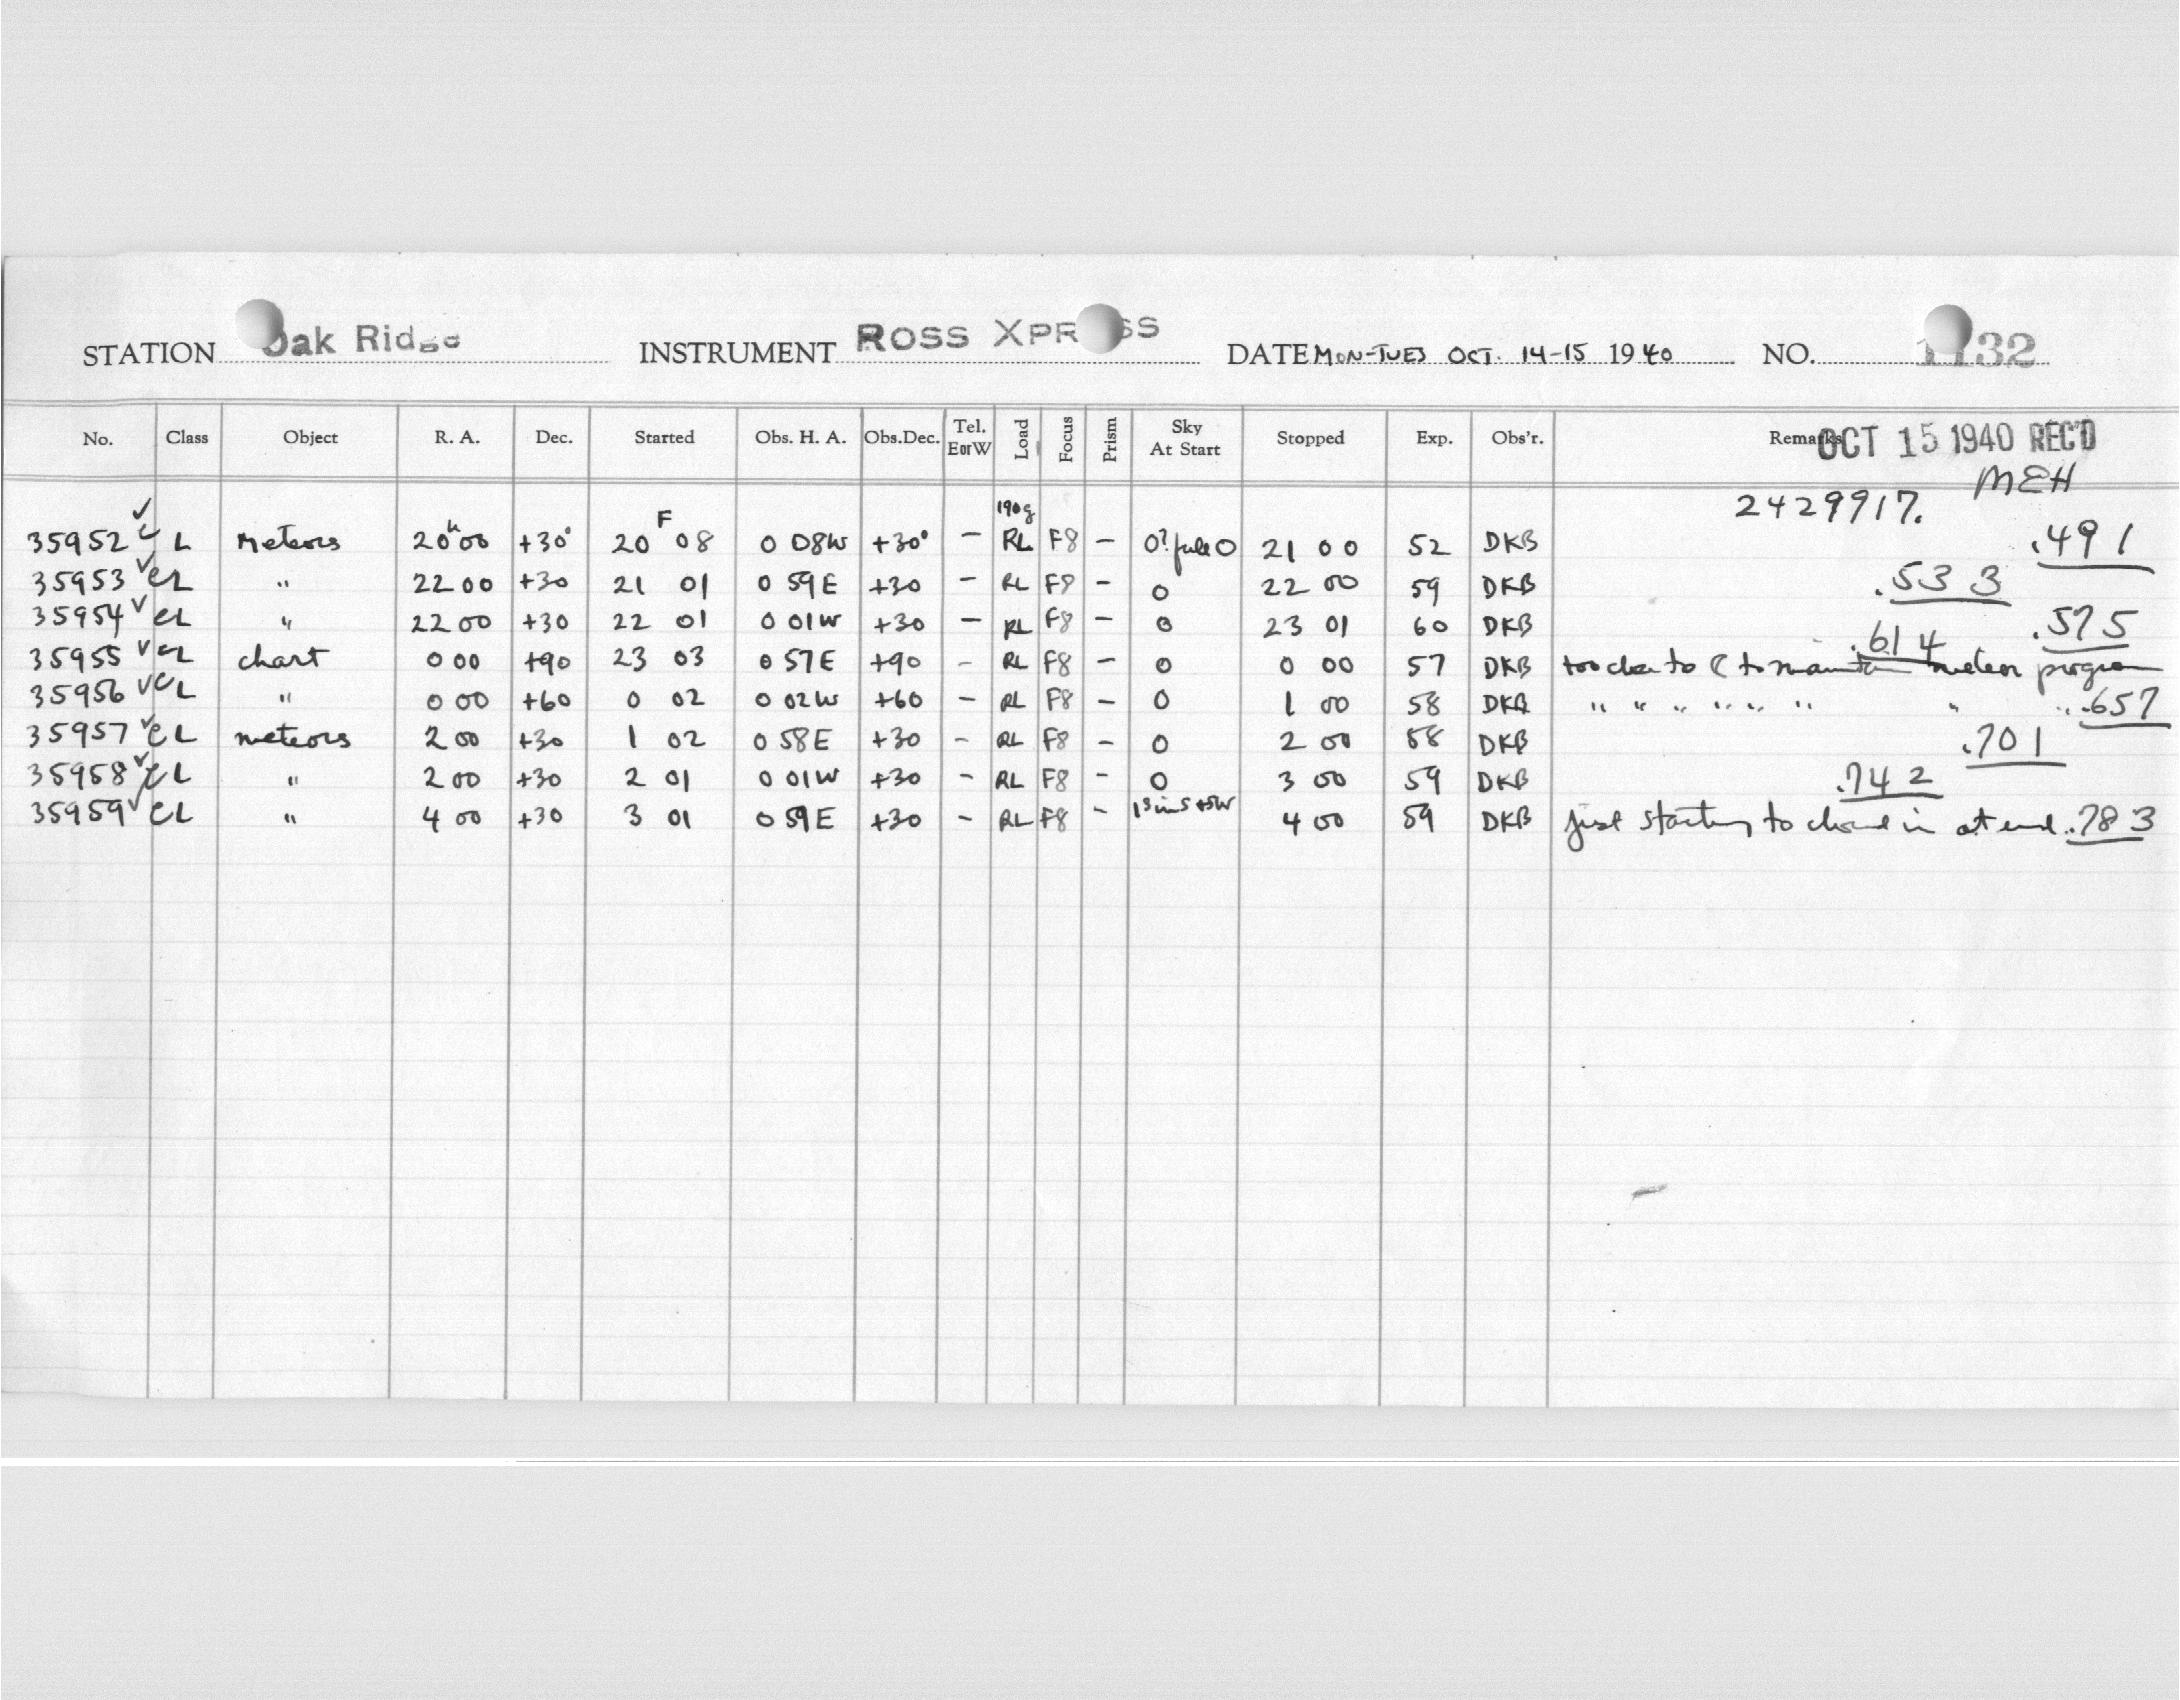 STATION Oak Ridge INSTRUMENT ROSS XPRESS DATE MON-TUES OCT. 14-15 1940 NO. 1132
No. Class Object R. A. Dec. Started Obs. H. A. Obs.Dec. Tel. EorW Load Focus Prism Sky At Start Stopped Exp. Obs'r. Remarks
OCT 15 1940 REC'D
MEH
2429917.
35952 ✓ C L Meteors 20ʰ00 +30° 20 F 08 0 08W +30° – 190g RL F8 – 0? 0 21 00 52 DKB .491
35953 ✓ CL " 22 00 +30 21 01 0 59E +30 – RL F8 – 0 22 00 59 DKB .533
35954 ✓ CL " 22 00 +30 22 01 0 01W +30 – RL F8 – 0 23 01 60 DKB .575
35955 ✓ CL chart 0 00 +90 23 03 0 57E +90 – RL F8 – 0 0 00 57 DKB too close to ☾ to maintain meteor program .614
35956 ✓ CL " 0 00 +60 0 02 0 02W +60 – RL F8 – 0 1 00 58 DKB " " " " " " " " .657
35957 ✓ CL meteors 2 00 +30 1 02 0 58E +30 – RL F8 – 0 2 00 58 DKB .701
35958 ✓ CL " 2 00 +30 2 01 0 01W +30 – RL F8 – 0 3 00 59 DKB .742
35959 ✓ CL " 4 00 +30 3 01 0 59E +30 – RL F8 – in S + SW 4 00 59 DKB just starting to cloud in at end .783